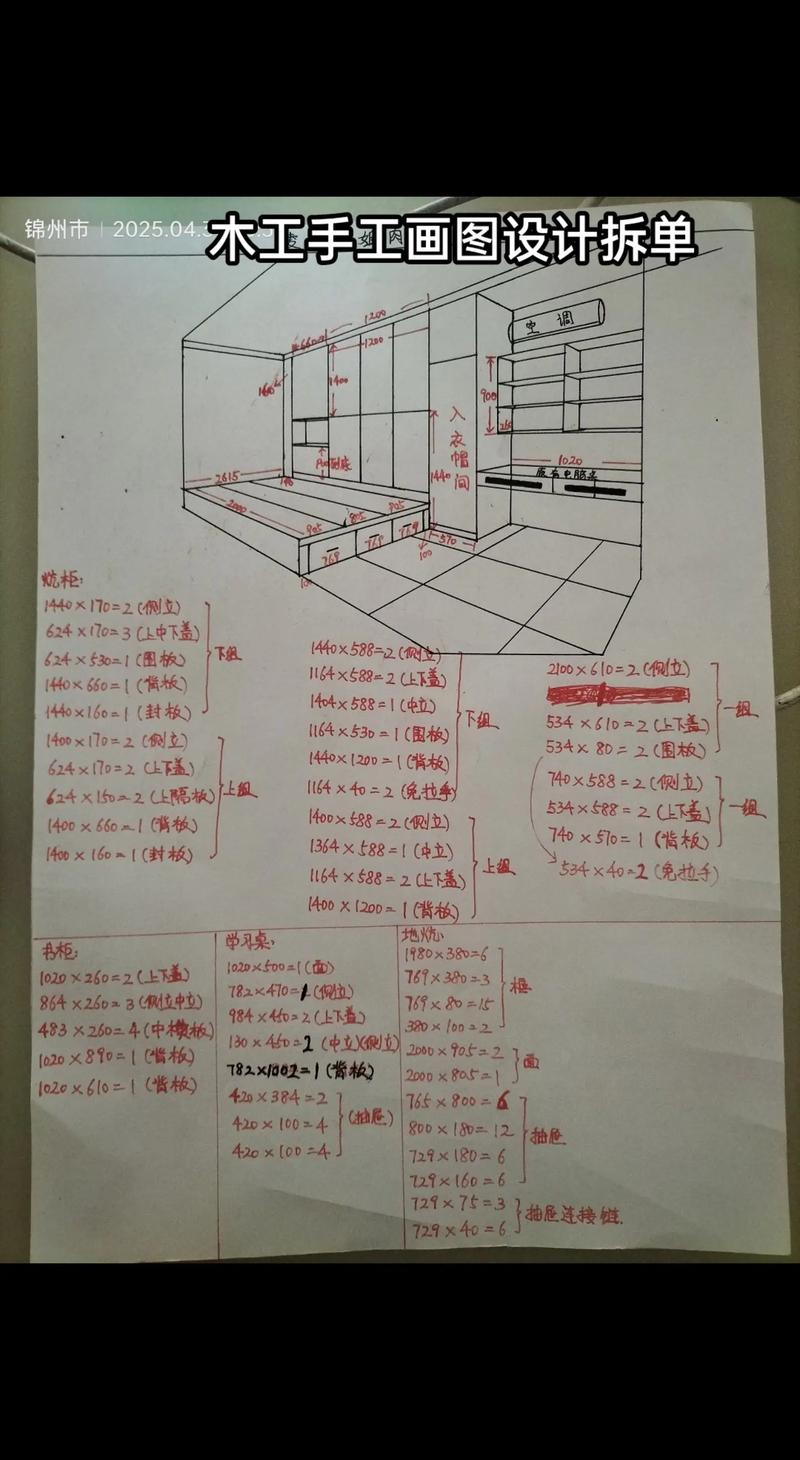 锦州市 | 2025.04.3
木工手工画图设计拆单
空调
1200
660
1200
1400
1640
900
260
入衣帽间
1440
1020
2615
140
2000
905
805
905
769
769
769
570
100
100
炕柜:
1440×170=2(侧立)
624×170=3(上中下盖)
624×530=1(围板)
1440×660=1(背板)
1440×160=1(封板)
下组
1400×170=2(侧立)
624×170=2(上下盖)
624×150=2(上隔板)
1400×660=1(背板)
1400×160=1(封板)
上组
1440×588=2(侧立)
1164×588=2(上下盖)
1404×588=1(中立)
1164×530=1(围板)
1440×1200=1(背板)
1164×40=2(免拉手)
下组
1400×588=2(侧立)
1364×588=1(中立)
1164×588=2(上下盖)
1400×1200=1(背板)
上组
2100×610=2(侧立)
534×610=2(上下盖)
534×80=2(围板)
一组
740×588=2(侧立)
534×588=2(上下盖)
740×570=1(背板)
一组
534×40=2(免拉手)
书柜:
1020×260=2(上下盖)
864×260=3(侧立中立)
483×260=4(中横板)
1020×890=1(背板)
1020×610=1(背板)
学习桌:
1020×500=1(面)
782×470=1(侧立)
984×450=2(上下盖)
130×450=2(中立)(侧立)
782×1002=1(背板)
420×384=2
420×100=4
420×100=4
(抽屉)
地炕:
1980×380=6
769×380=3
769×80=15
380×100=2
框
2000×905=2
2000×805=1
面
765×800=6
800×180=12
729×180=6
729×160=6
抽屉
729×75=3
729×40=6
抽屉连接链.